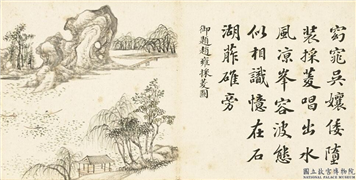 窈窕吳孃倭墮
裝採菱唱出水
風涼峯容波態
似相識憶在石
湖菲碓旁
御題趙雍採菱圖
國立故宮博物院
NATIONAL PALACE MUSEUM